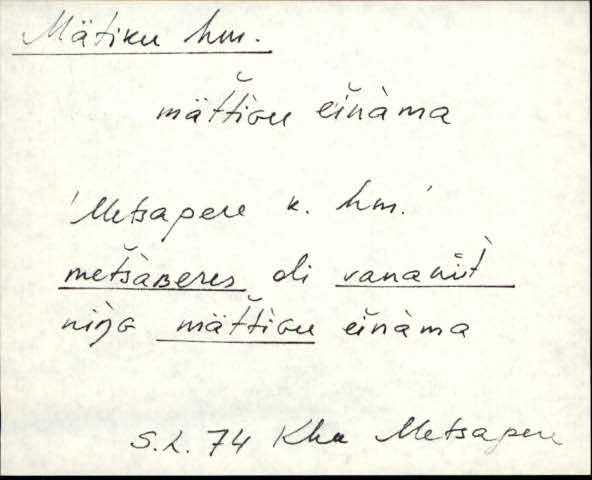 Mätiku hm.
mättiɢu eìnàma
'Metsapere k. hm.'
metsàʙeres oli vananiìt̀
niŋɢ mättiɢu eìnàma
S.L. 74 Khn Metsapere